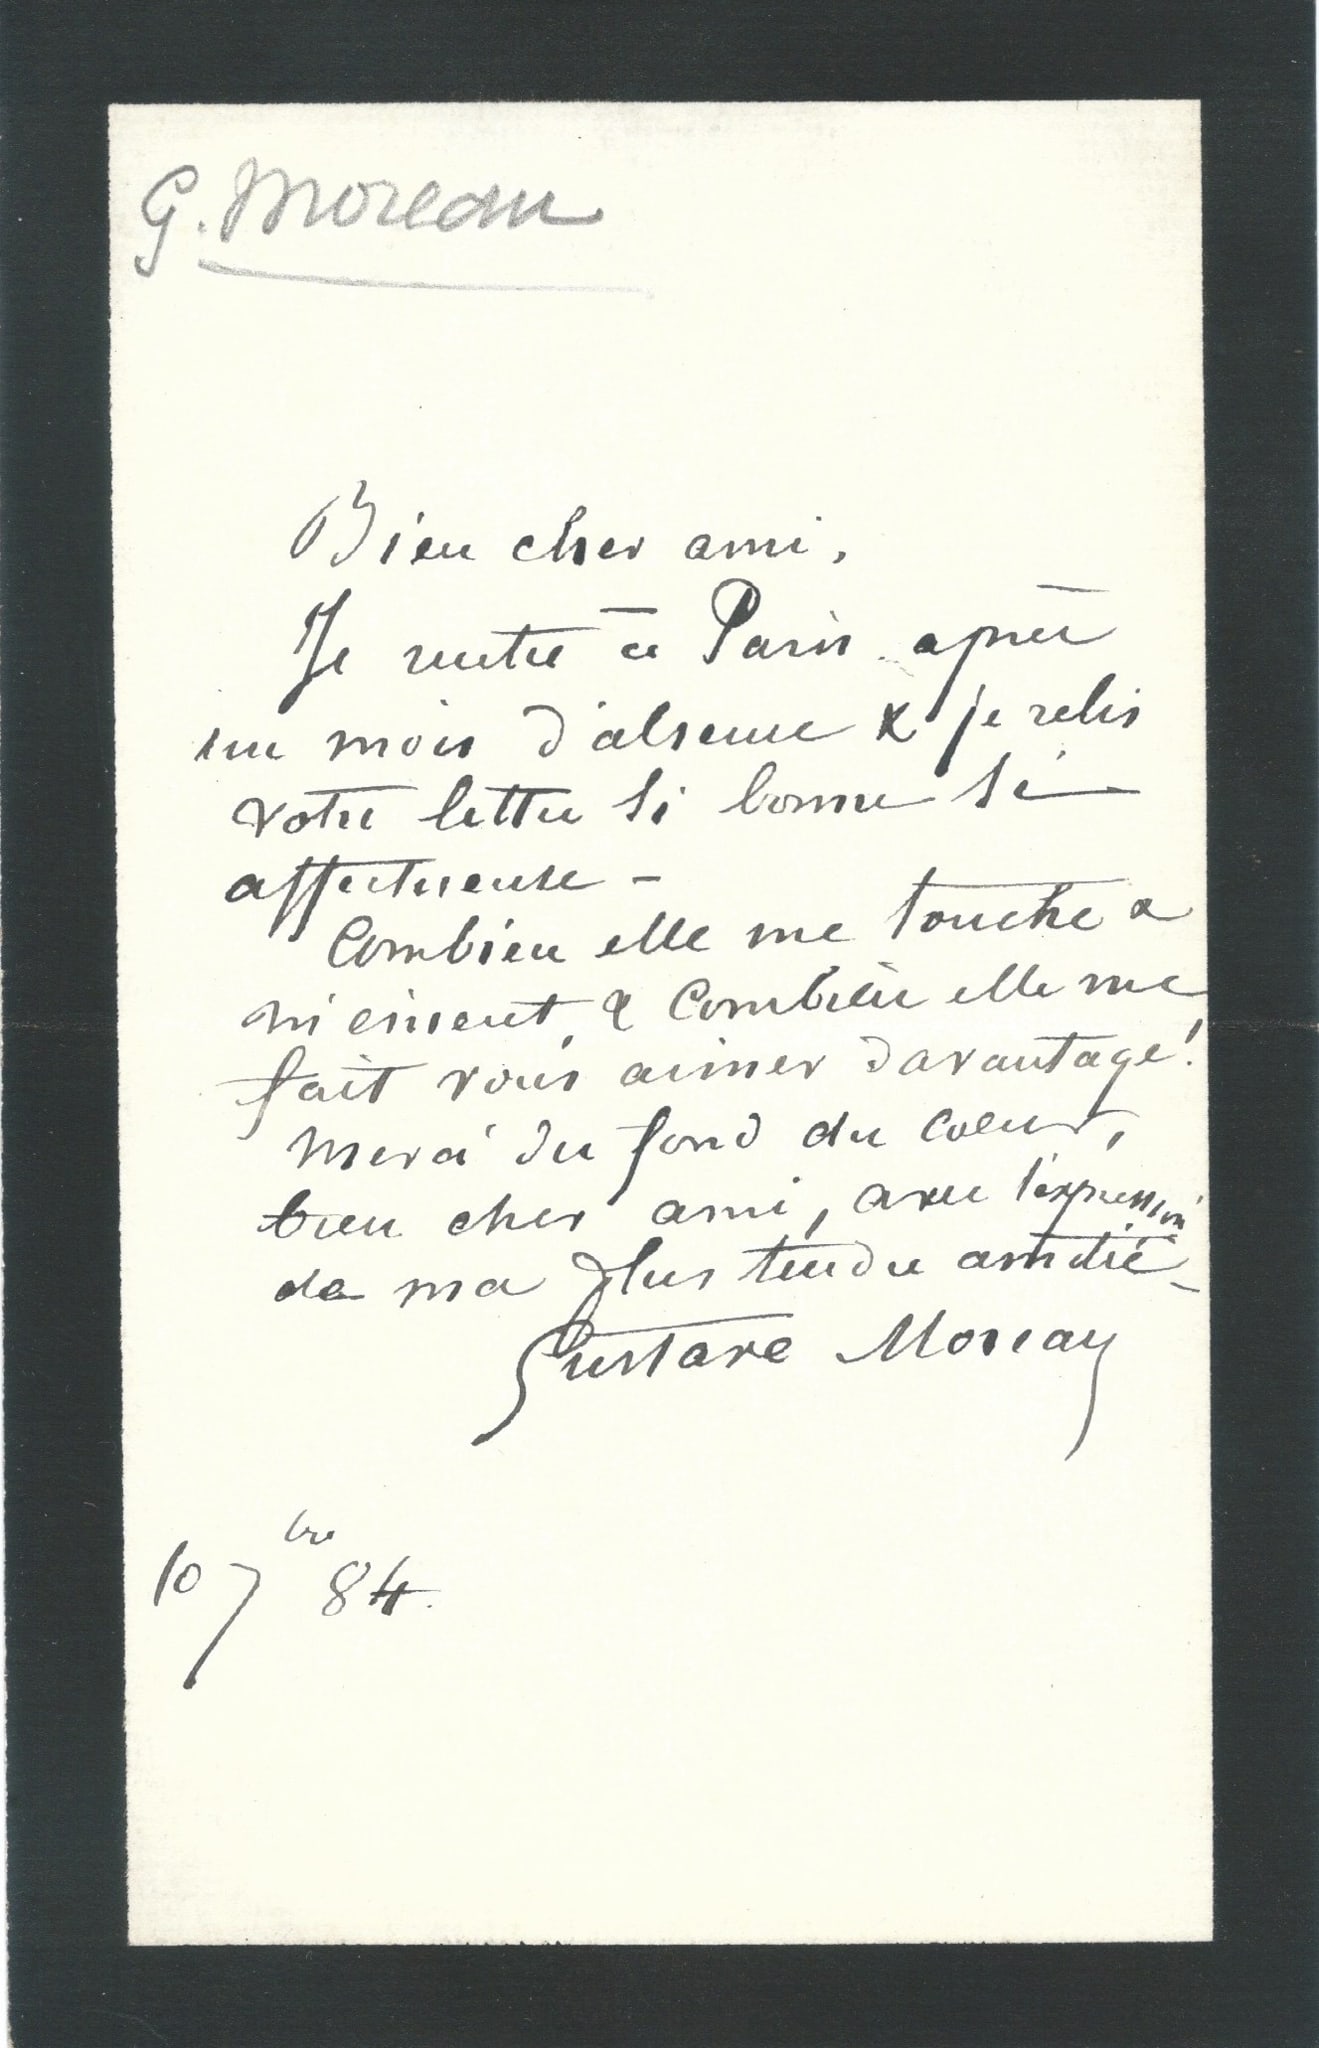 G. Moreau
Bien cher ami,
Je rentre à Paris après
un mois d'absence & je relis
votre lettre si bonne si
affectueuse –
Combien elle me touche &
m'émeut, & combien elle me
fait vous aimer davantage!
Merci du fond du cœur,
bien cher ami, avec l'expression
de ma plus tendre amitié –
Gustave Moreau
10 7bre 84.